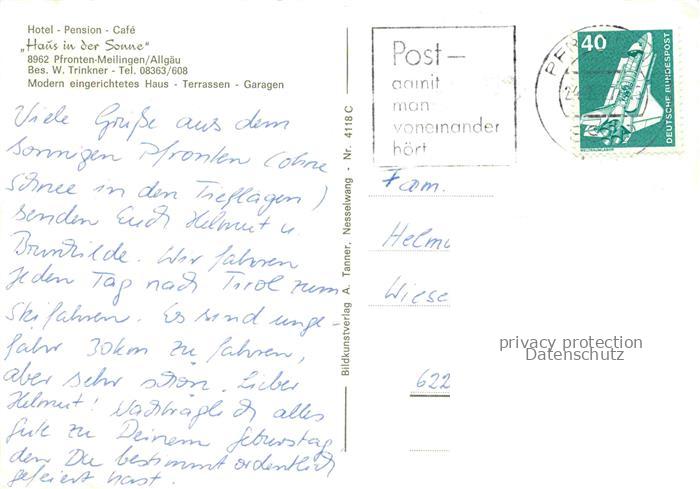 Hotel - Pension - Café
„Haus in der Sonne"
8962 Pfronten-Meilingen/Allgäu
Bes. W. Trinkner - Tel. 08363/608
Modern eingerichtetes Haus - Terrassen - Garagen
Viele Grüße aus dem
sonnigen Pfronten (ohne
Schnee in den Tieflagen)
senden Euch Helmut u.
Brunhilde. Wir fahren
jeden Tag nach Tirol zum
Skifahren. Es sind unge-
fähr 30km zu fahren,
aber sehr schön. Lieber
Helmut! Nachträglich alles
Gute zu Deinem Geburtstag
den Du bestimmt ordentlich
gefeiert hast.
Bildkunstverlag A. Tanner, Nesselwang - Nr. 4118 C
Post –
damit
man
voneinander
hört
40
DEUTSCHE BUNDESPOST
Fam.
Helmu
Wiese
622
privacy protection
Datenschutz